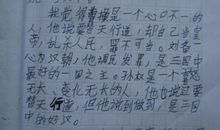 我觉得曹操是一个心口不一的
人，他说替天行道，却自己当皇
帝，乱杀人民，罪不可当。刘备一
心为汉朝，他
最好的一国之主。孙权是一个
无长、变化无长的人，他也说过要
替天行道，但他说到做到，是三国
中的好汉。